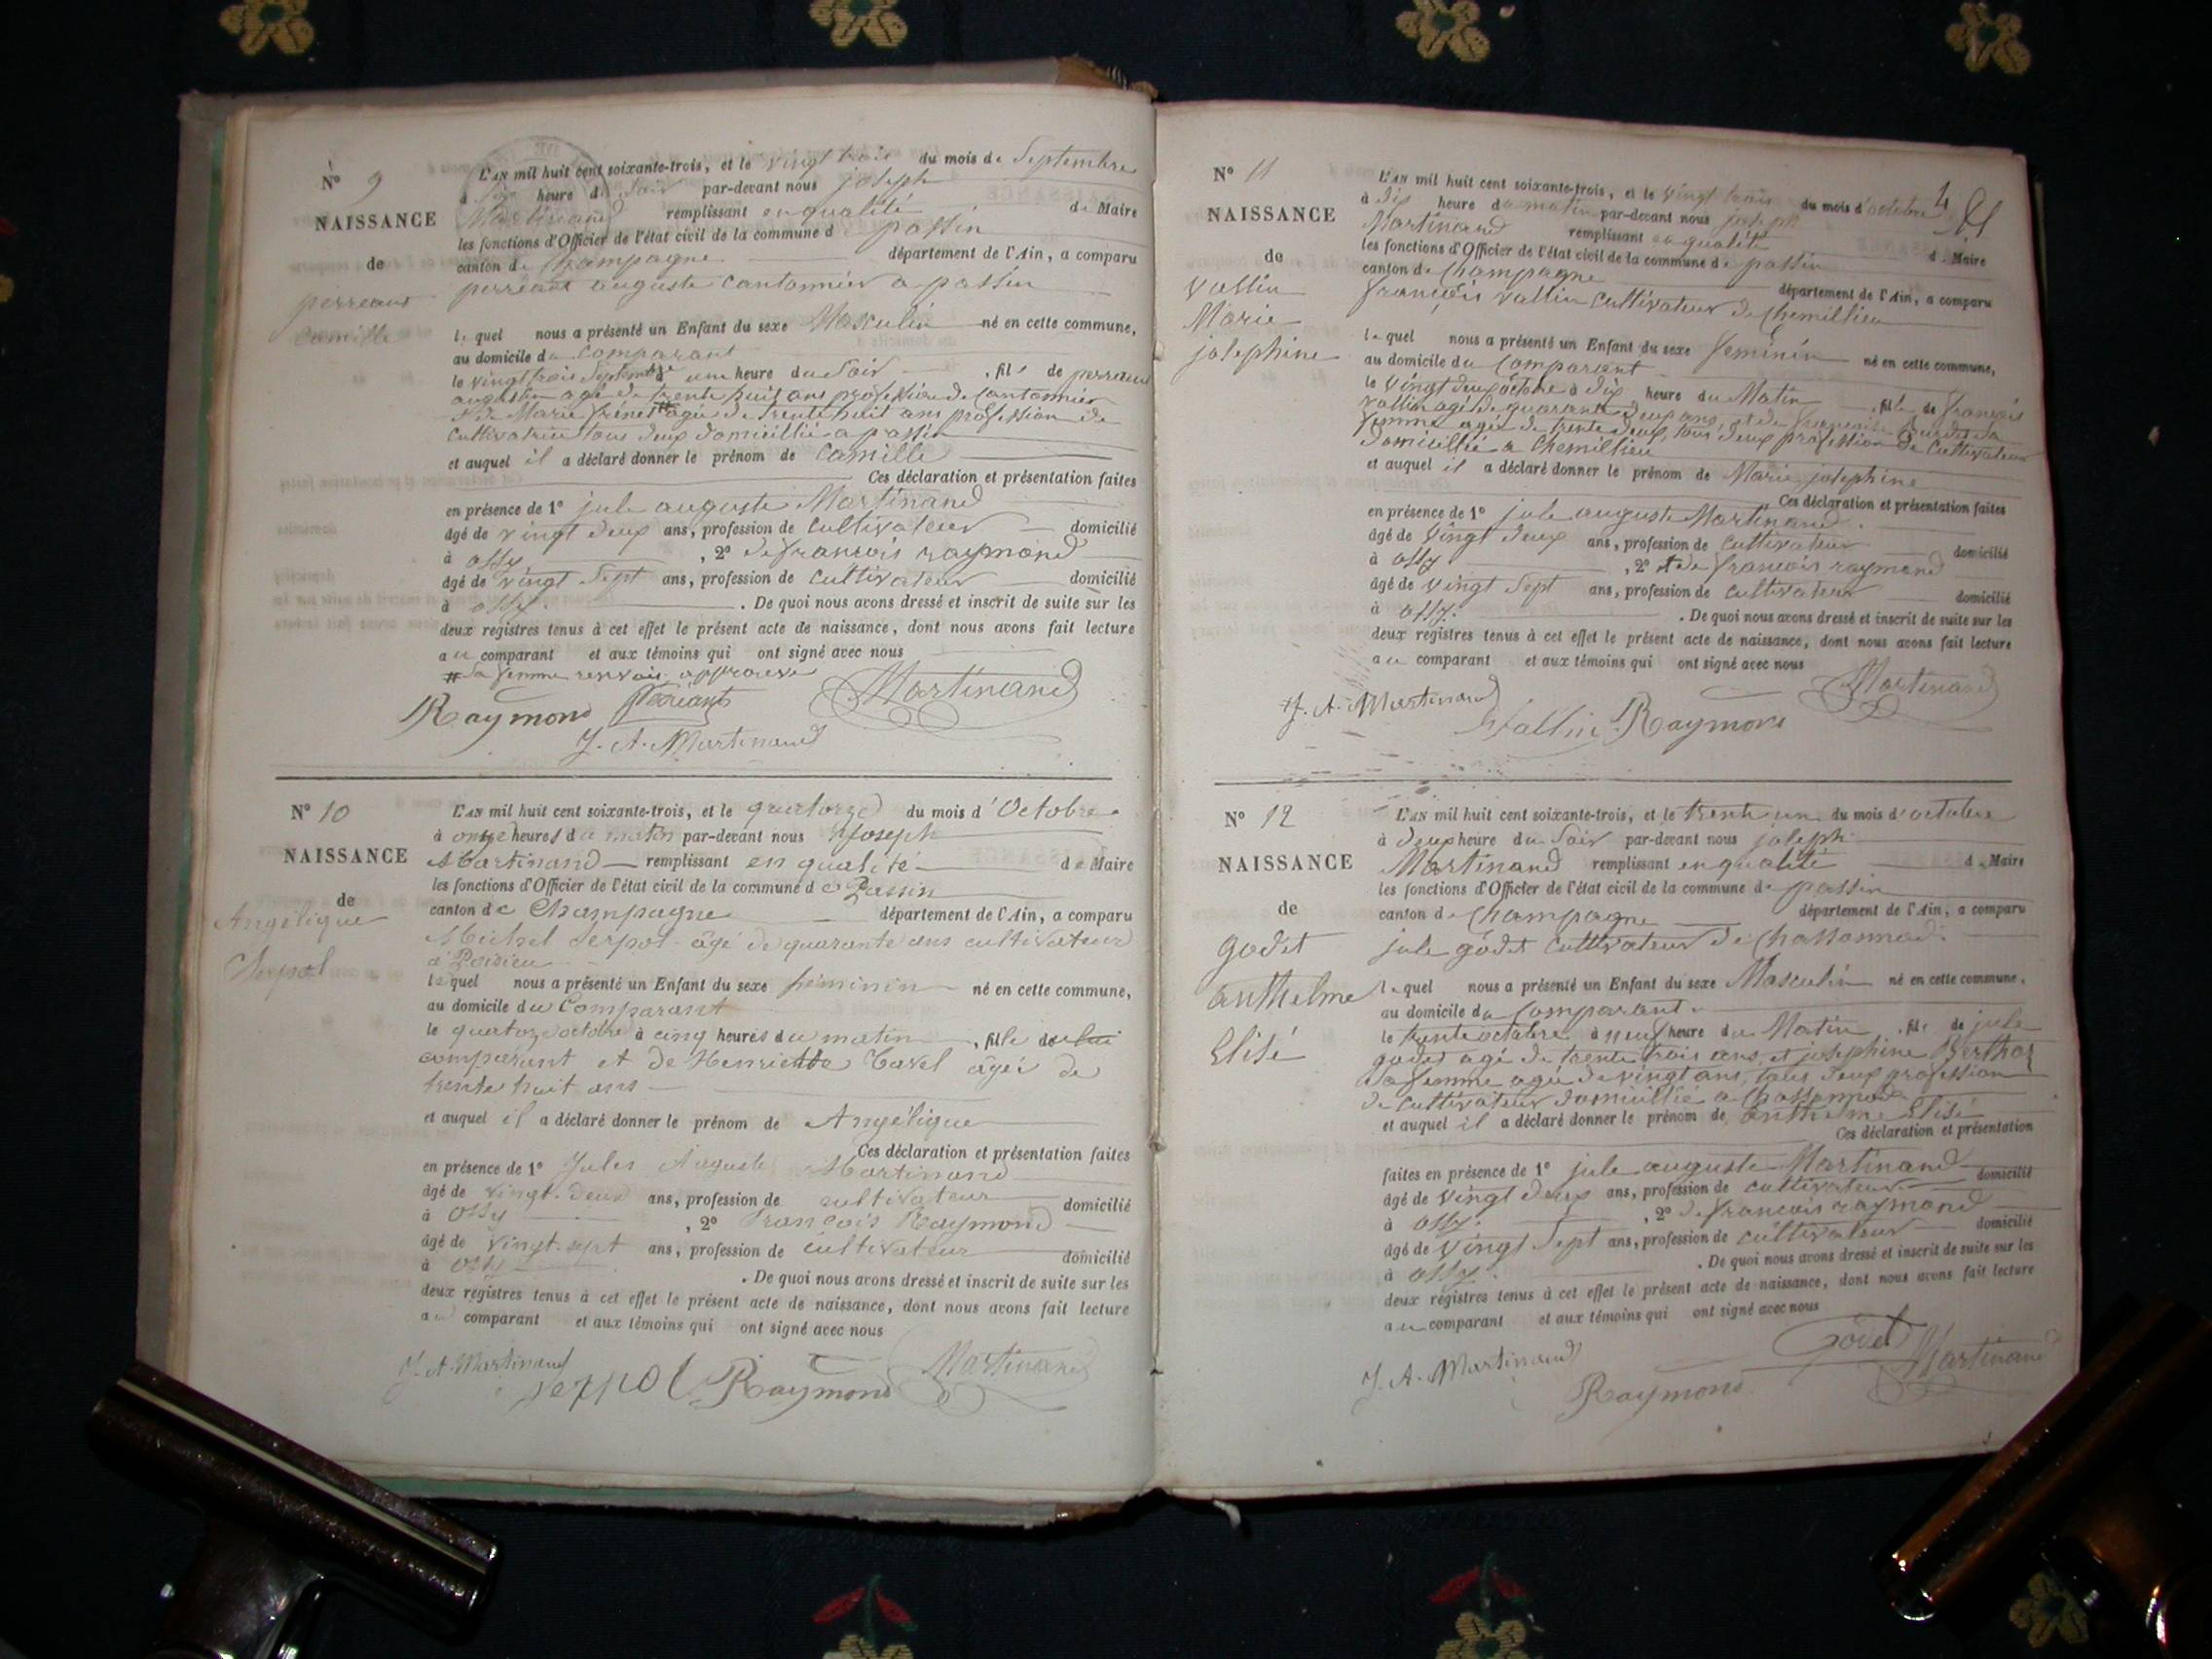 N° 9
NAISSANCE
de
perreant
Camille
L'AN mil huit cent soixante-trois, et le vingt trois du mois de Septembre
à heure du Soir par-devant nous joseph
Martinand remplissant en qualité de Maire
les fonctions d'Officier de l'état civil de la commune de passin
canton de Champagne département de l'Ain, a comparu
perreant auguste cantonnier a passin
le quel nous a présenté un Enfant du sexe Masculin né en cette commune,
au domicile du comparant
le vingt trois Septembre à une heure du Soir , fils de perreant
auguste agé de trente huit ans profession de Cantonnier
et de Marie # agée de trente huit ans profession de
Cultivatrice tous deux domicillié a passin
et auquel il a déclaré donner le prénom de Camille
Ces déclaration et présentation faites
en présence de 1° jule auguste Martinand
âgé de vingt deux ans, profession de Cultivateur domicilié
à ossy , 2° de francois raymond
âgé de vingt Sept ans, profession de Cultivateur domicilié
à ossy. . De quoi nous avons dressé et inscrit de suite sur les
deux registres tenus à cet effet le présent acte de naissance, dont nous avons fait lecture
au comparant et aux témoins qui ont signé avec nous
# sa femme renvoi approuvé
Raymond Perreant Martinand
J. A. Martinand
N° 10
NAISSANCE
de
Angélique
Serpol
L'AN mil huit cent soixante-trois, et le quatorze du mois d'Octobre
à onze heures du matin par-devant nous Joseph
Martinand remplissant en qualité de Maire
les fonctions d'Officier de l'état civil de la commune de Passin
canton de Champagne département de l'Ain, a comparu
Michel Serpol âgé de quarante ans cultivateur
à Poisieu
le quel nous a présenté un Enfant du sexe féminin né en cette commune,
au domicile du Comparant
le quatorze octobre à cinq heures du matin , fille de lui
comparant et de Henriette Carel âgée de
trente huit ans
et auquel il a déclaré donner le prénom de Angélique
Ces déclaration et présentation faites
en présence de 1° Jules Auguste Martinand
âgé de vingt-deux ans, profession de cultivateur domicilié
à Ossy , 2° François Raymond
âgé de vingt-sept ans, profession de cultivateur domicilié
à Ossy . De quoi nous avons dressé et inscrit de suite sur les
deux registres tenus à cet effet le présent acte de naissance, dont nous avons fait lecture
au comparant et aux témoins qui ont signé avec nous
J. A. Martinand serpol Raymond Martinand
4
N° 11
NAISSANCE
de
Vallin
Marie
josephine
L'AN mil huit cent soixante-trois, et le vingt trois du mois d'octobre
à dix heure du matin par-devant nous joseph
Martinand remplissant en qualité de Maire
les fonctions d'Officier de l'état civil de la commune de passin
canton de Champagne département de l'Ain, a comparu
françois vallin cultivateur de Chemillieu
le quel nous a présenté un Enfant du sexe feminin né en cette commune,
au domicile du Comparant
le Vingt deux octobre à dix heure du Matin , fille de françois
vallin agé de quarante deux ans et de françoise sa
femme agée de trente deux, tous deux profession de Cultivateur
domicillié a Chemillieu
et auquel il a déclaré donner le prénom de Marie josephine
Ces déclaration et présentation faites
en présence de 1° jule auguste Martinand
âgé de Vingt deux ans, profession de Cultivateur domicilié
à ossy , 2° de francois raymond
âgé de vingt Sept ans, profession de Cultivateur domicilié
à ossy. . De quoi nous avons dressé et inscrit de suite sur les
deux registres tenus à cet effet le présent acte de naissance, dont nous avons fait lecture
au comparant et aux témoins qui ont signé avec nous
J. A. Martinand Vallin Raymond Martinand
N° 12
NAISSANCE
de
godet
anthelme
Elisé
L'AN mil huit cent soixante-trois, et le trente un du mois d'octobre
à deux heure du Soir par-devant nous joseph
Martinand remplissant en qualité de Maire
les fonctions d'Officier de l'état civil de la commune de passin
canton de Champagne département de l'Ain, a comparu
jule godet Cultivateur de Chassonnod
le quel nous a présenté un Enfant du sexe Masculin né en cette commune,
au domicile du Comparant
le trente octobre à neuf heure du Matin , fils de jule
godet agé de trente trois ans et josephine Berthet
sa femme agée de vingt ans, tous deux profession
de Cultivateur domicillié a Chassonnod
et auquel il a déclaré donner le prénom de anthelme Elisé
Ces déclaration et présentation
faites en présence de 1° jule auguste Martinand domicilié
âgé de vingt deux ans, profession de Cultivateur
à ossy. , 2° de francois raymond
âgé de vingt Sept ans, profession de Cultivateur domicilié
à ossy. . De quoi nous avons dressé et inscrit de suite sur les
deux registres tenus à cet effet le présent acte de naissance, dont nous avons fait lecture
au comparant et aux témoins qui ont signé avec nous
J. A. Martinand Raymond Godet Martinand